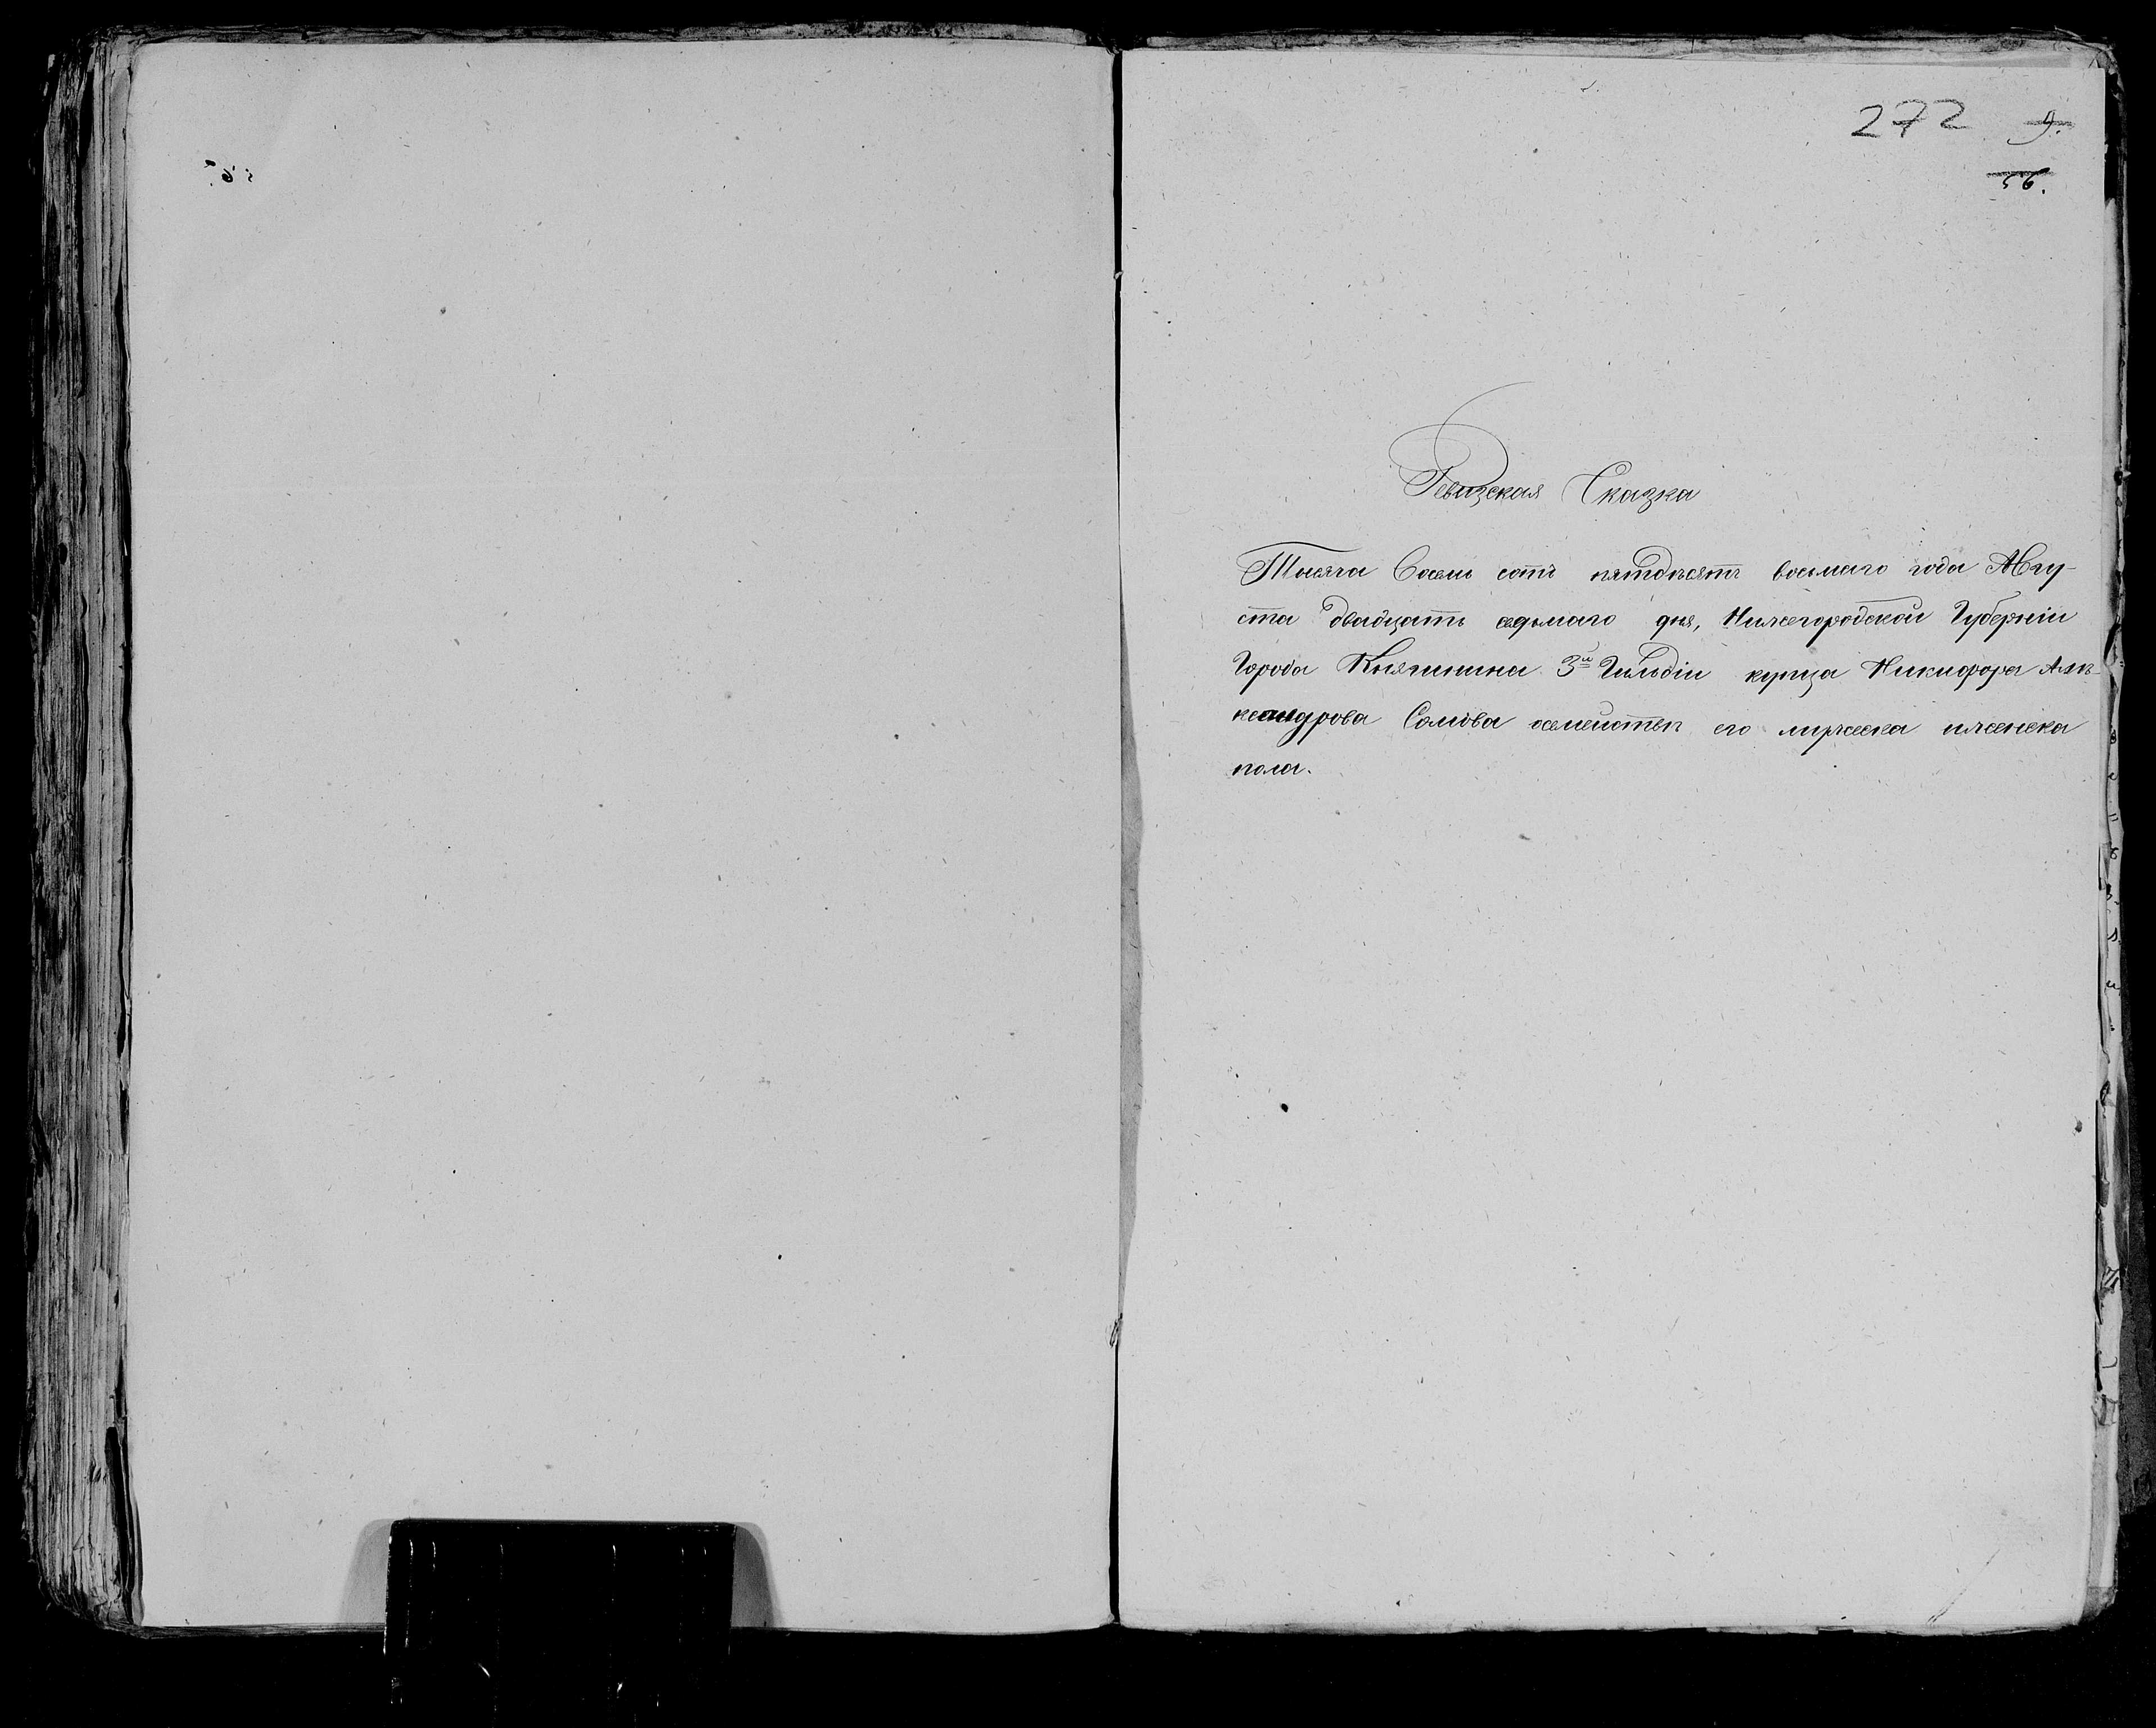 272 9.
56.
Ревизская Сказка
Тысяча Восемь сотъ пятдѣсятъ восьмаго года Авгу-
ста двадцать седьмаго дня, Нижегородской Губерніи
Города Княгинина 3й Гильдіи купца Никифора Алѣ-
ксандрова Сомова о семействѣ его мужеска и женска
пола.